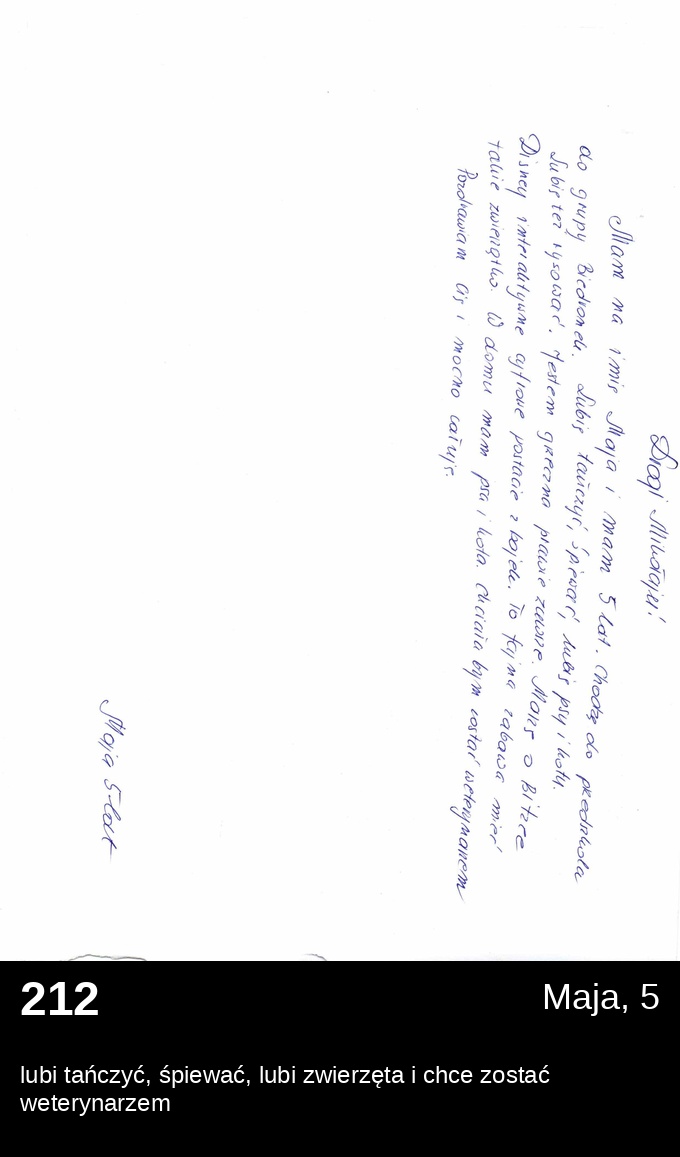 Drogi Mikołaju!
Mam na imię Maja i mam 5 lat. Chodzę do przedszkola
do grupy Biedronek. Lubię tańczyć, śpiewać, lubię psy i koty.
Lubię też rysować. Jestem grzeczna prawie zawsze. Marzę o Bitzee
Disney interaktywne cyfrowe postacie z bajek. To fajna zabawa mieć
takie zwierzątko. W domu mam psa i kota. Chciała bym zostać weterynarzem
Pozdrawiam Cię i mocno całuję.
Maja 5-lat
212
Maja, 5
lubi tańczyć, śpiewać, lubi zwierzęta i chce zostać
weterynarzem